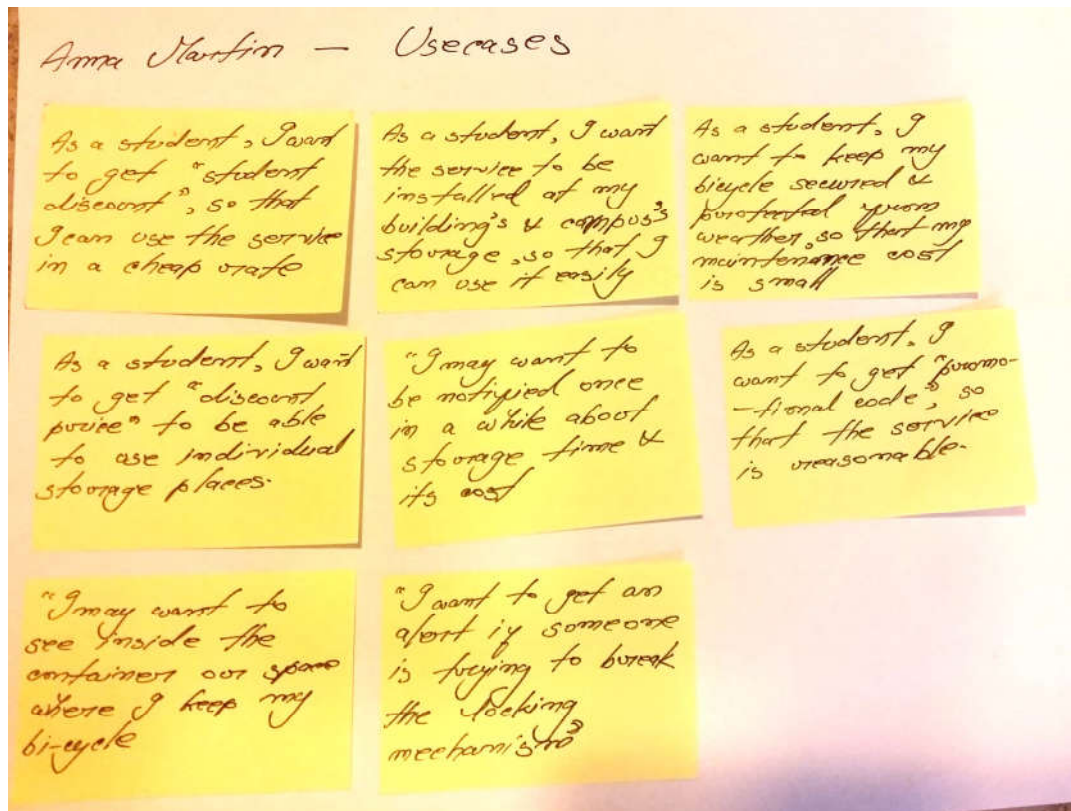 Anna Martin — Usecases
As a student, I want
to get "student
discount", so that
I can use the service
in a cheap rate
As a student, I want
the service to be
installed at my
building's & campus's
storage, so that I
can use it easily
As a student, I
want to keep my
bicycle secured &
protected from
weather, so that my
maintenance cost
is small
As a student, I want
to get "discount
price" to be able
to use individual
storage places.
"I may want to
be notified once
in a while about
storage time &
its cost
As a student, I
want to get "promo-
-tional code", so
that the service
is reasonable.
"I may want to
see inside the
container or space
where I keep my
bi-cycle
"I want to get an
alert if someone
is trying to break
the locking
mechanism"